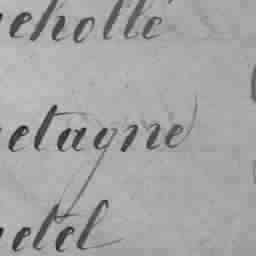 eholle
etagne
etel